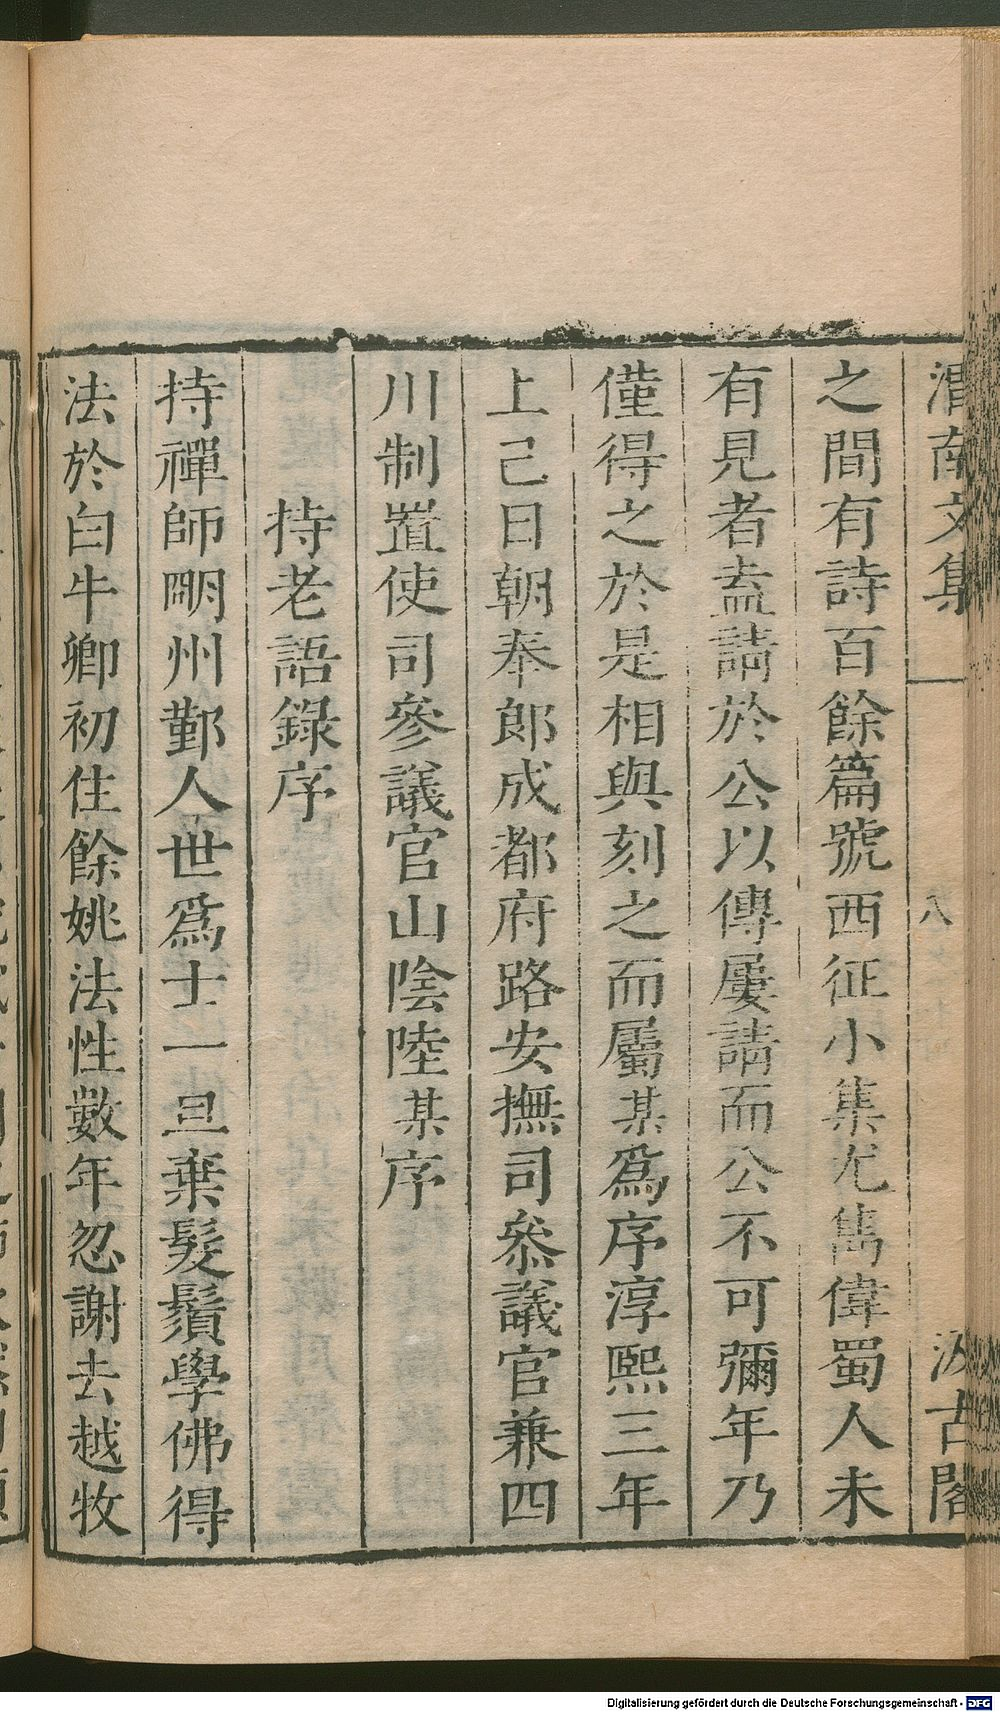 渭南文集 八 汲古閣
之間有詩百餘篇號西征小集尤雋偉蜀人未
有見者盍請於公以傳屢請而公不可彌年乃
僅得之於是相與刻之而屬某爲序淳熙三年
上巳日朝奉郎成都府路安撫司叅議官兼四
川制置使司參議官山陰陸某序
持老語錄序
持禪師明州鄞人世爲士一旦棄髮鬚學佛得
法於白牛卿初住餘姚法性數年忽謝去越牧
Digitalisierung gefördert durch die Deutsche Forschungsgemeinschaft - DFG